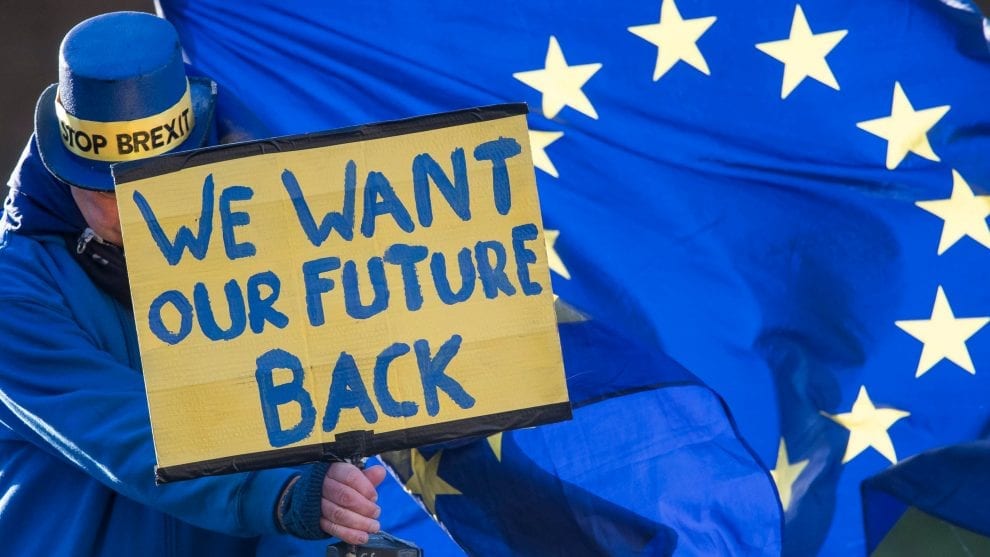 STOP BREXIT
WE WANT
OUR FUTURE
BACK